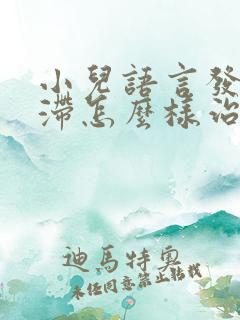 小兒語言發
滯怎麼樣治
迪馬特奧
未經同意禁止轉載